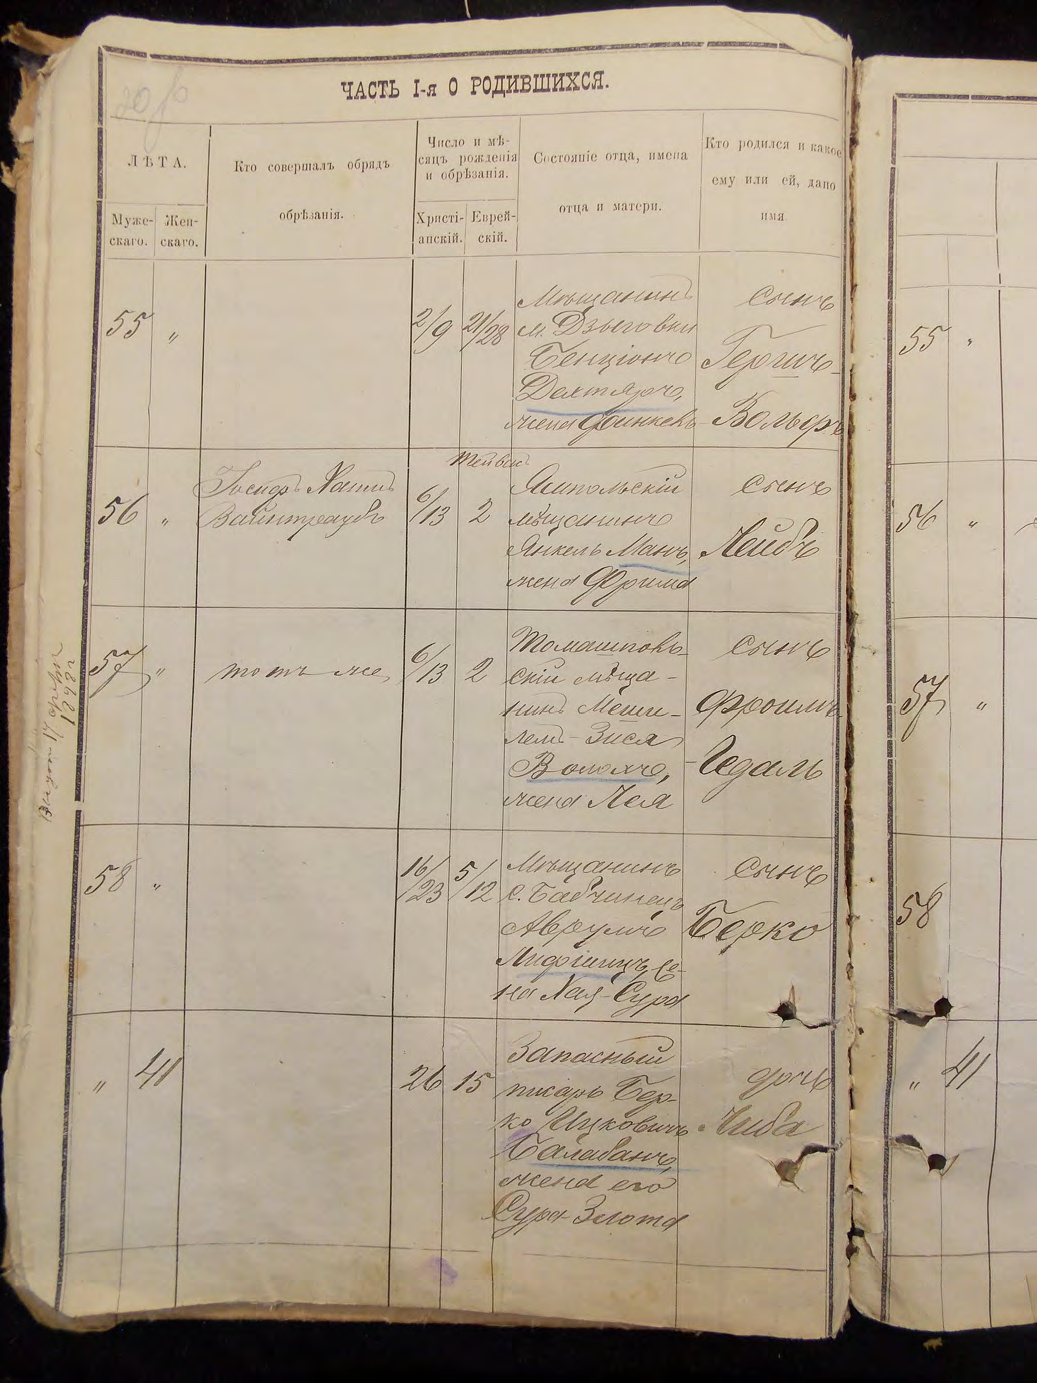 ЧАСТЬ I-я О РОДИВШИХСЯ.
ЛѢТА.
Муже-
скаго.
Жен-
скаго.
Кто совершалъ обрядъ
обрѣзанія.
Число и мѣ-
сяцъ рожденія
и обрѣзанія.
Христі-
анскій.
Еврей-
скій.
Состояніе отца, имена
отца и матери.
Кто родился и какое
ему или ей, дано
имя
55
"
2/9
21/28
Мѣщанинъ
м. Дзыговки
Бенціонъ
Дехтяръ,
жена Фейнкевъ
сынъ
Гершъ-
Вольфъ
56
"
Іосифъ Хаимъ
Вайнтраубъ
6/13
Тейвас
2
Ямпольскій
мѣщанинъ
Янкель Манъ,
жена Фрима
сынъ
Лейбъ
57
"
тотъ же
6/13
2
Томашполь-
скій мѣща-
нинъ Меши-
лемъ-Зися
Волохъ,
жена Лея
сынъ
Фроимъ
-Идаль
58
"
16/23
5/12
Мѣщанинъ
с. Бабчинецъ
Аврумъ
же-
на Хая-Сура
сынъ
Берко
"
41
26
15
Запасный
писарь Бер-
ко Ицковичъ
Балабанъ,
жена его
Сура-Злота
дочь
Либа
55
"
56
"
57
"
58
"
41